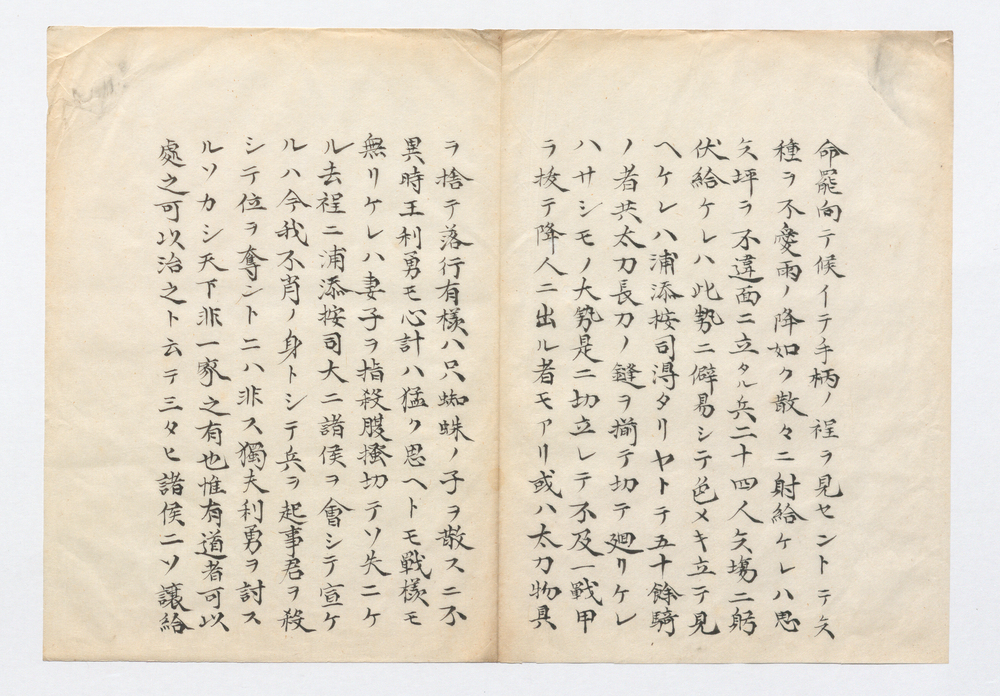 命罷向テ候イテ手柄ノ程ヲ見セントテ矢
種ヲ不愛雨ノ降如ク散々ニ射給ケレハ思
矢坪ヲ不違面ニ立タル兵二十四人矢場ニ躬
伏給ケレハ此勢ニ僻易シテ色メキ立テ見
ヘケレハ浦添按司得タリヤトテ五十餘騎
ノ者共太刀長刀ノ鋒ヲ揃テ切テ廻リケレ
ハサシモノ大勢是ニ切立レテ不及一戰甲
ヲ抜テ降人ニ出ル者モアリ或ハ太刀物具
ヲ捨テ落行有様ハ只蜘蛛ノ子ヲ散スニ不
異時王利勇モ心計ハ猛ク思ヘトモ戰様モ
無リケレハ妻子ヲ指殺腹掻切テソ失ニケ
ル去程ニ浦添按司大ニ諸侯ヲ會シテ宣ケ
ルハ今我不肖ノ身トシテ兵ヲ起事君ヲ殺
シテ位ヲ奪ントニハ非ス獨夫利勇ヲ討ス
ルソカシ天下非一家之有也惟有道者可以
處之可以治之ト云テ三タヒ諸侯ニソ讓給